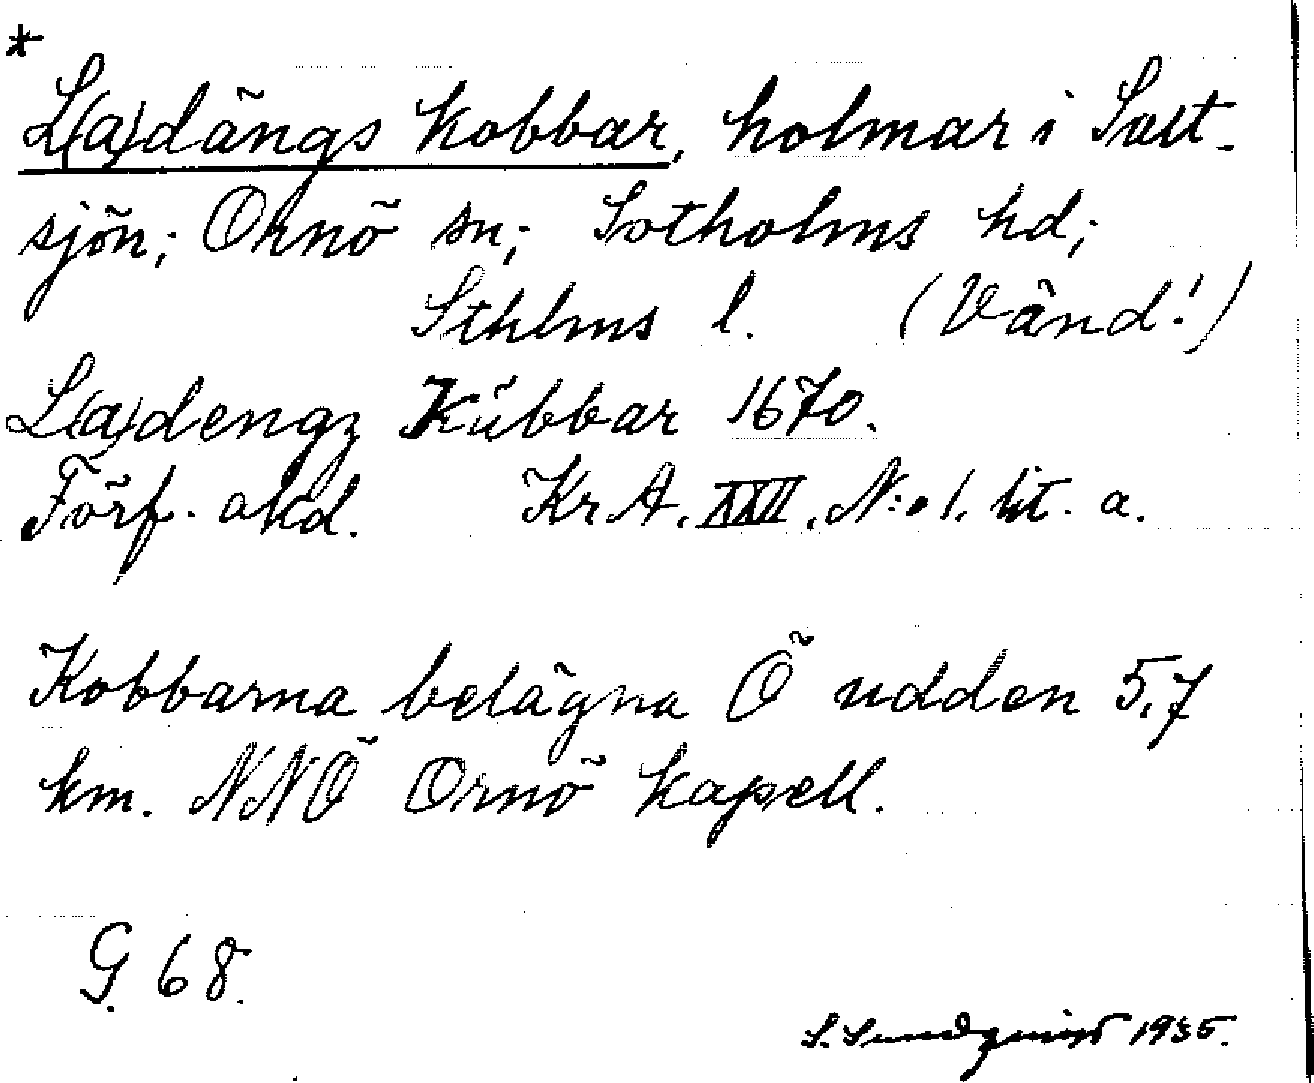 *
L(a)dängs kobbar, holmar i Salt-
sjön; Ornö sn; Sotholms hd;
Sthlms l. (Vänd!)
L(a)dengz Kübbar 1670.
Förf. okd. KrA. XXII. N:o 1. lit. a.
Kobbarna belägna Ö udden 5,7
km. NNÖ Ornö kapell.
G. 68.
S. Sundqvist 1935.